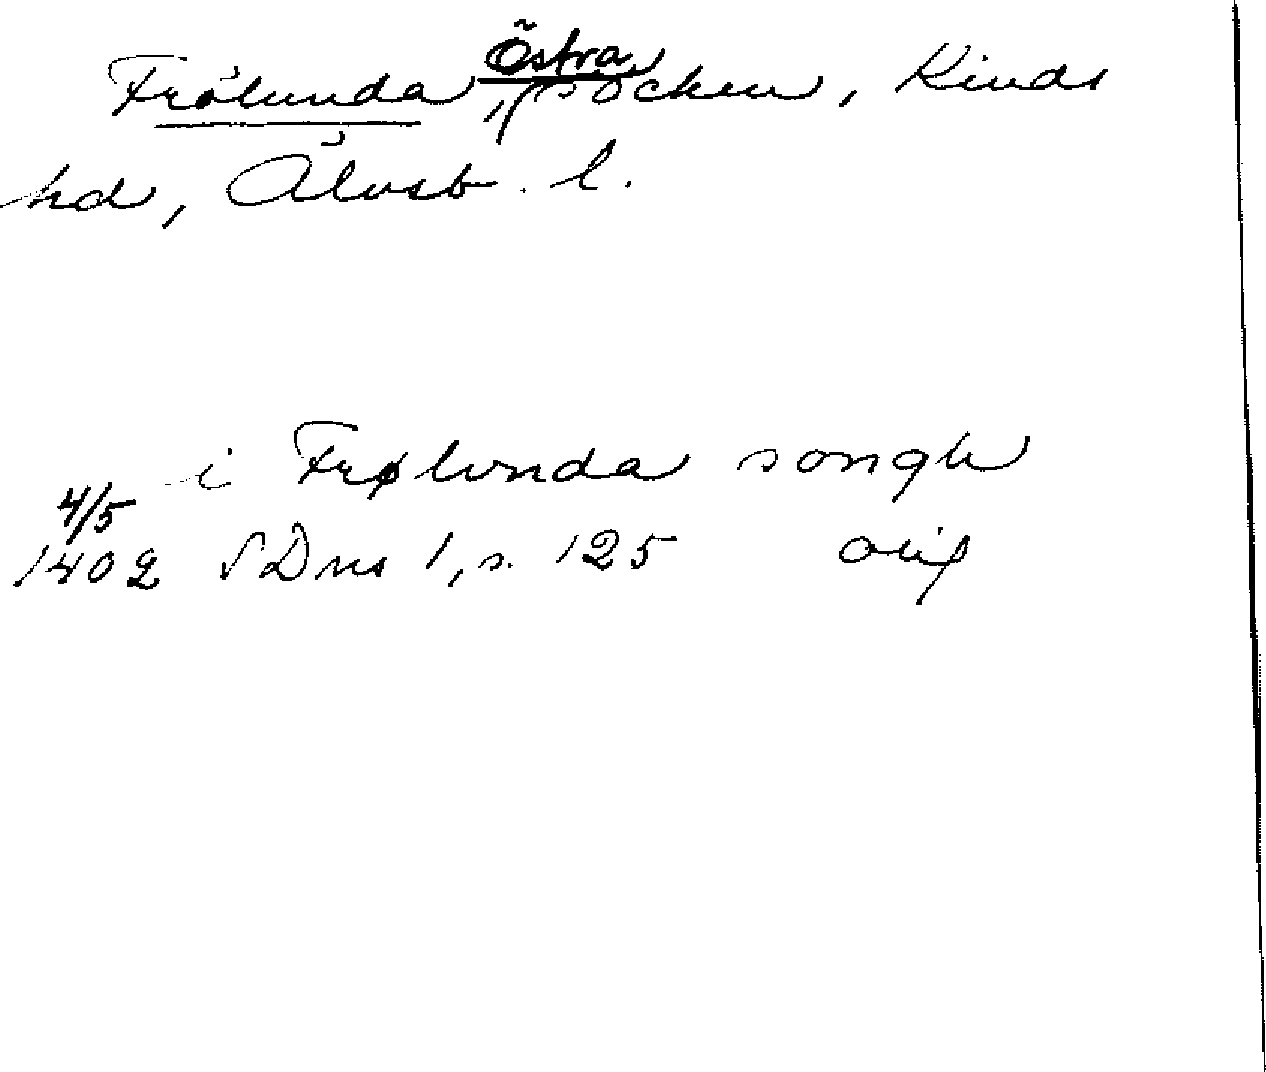 Frölunda, Östra socken, Kinds
hd, Älvsb. l.
i Frølvnda songh
4/5
1402 SDns 1, s. 125 orig